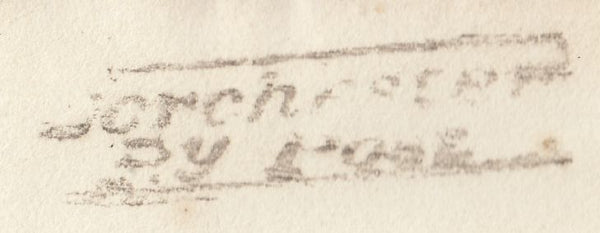 Dorchester
Py Post